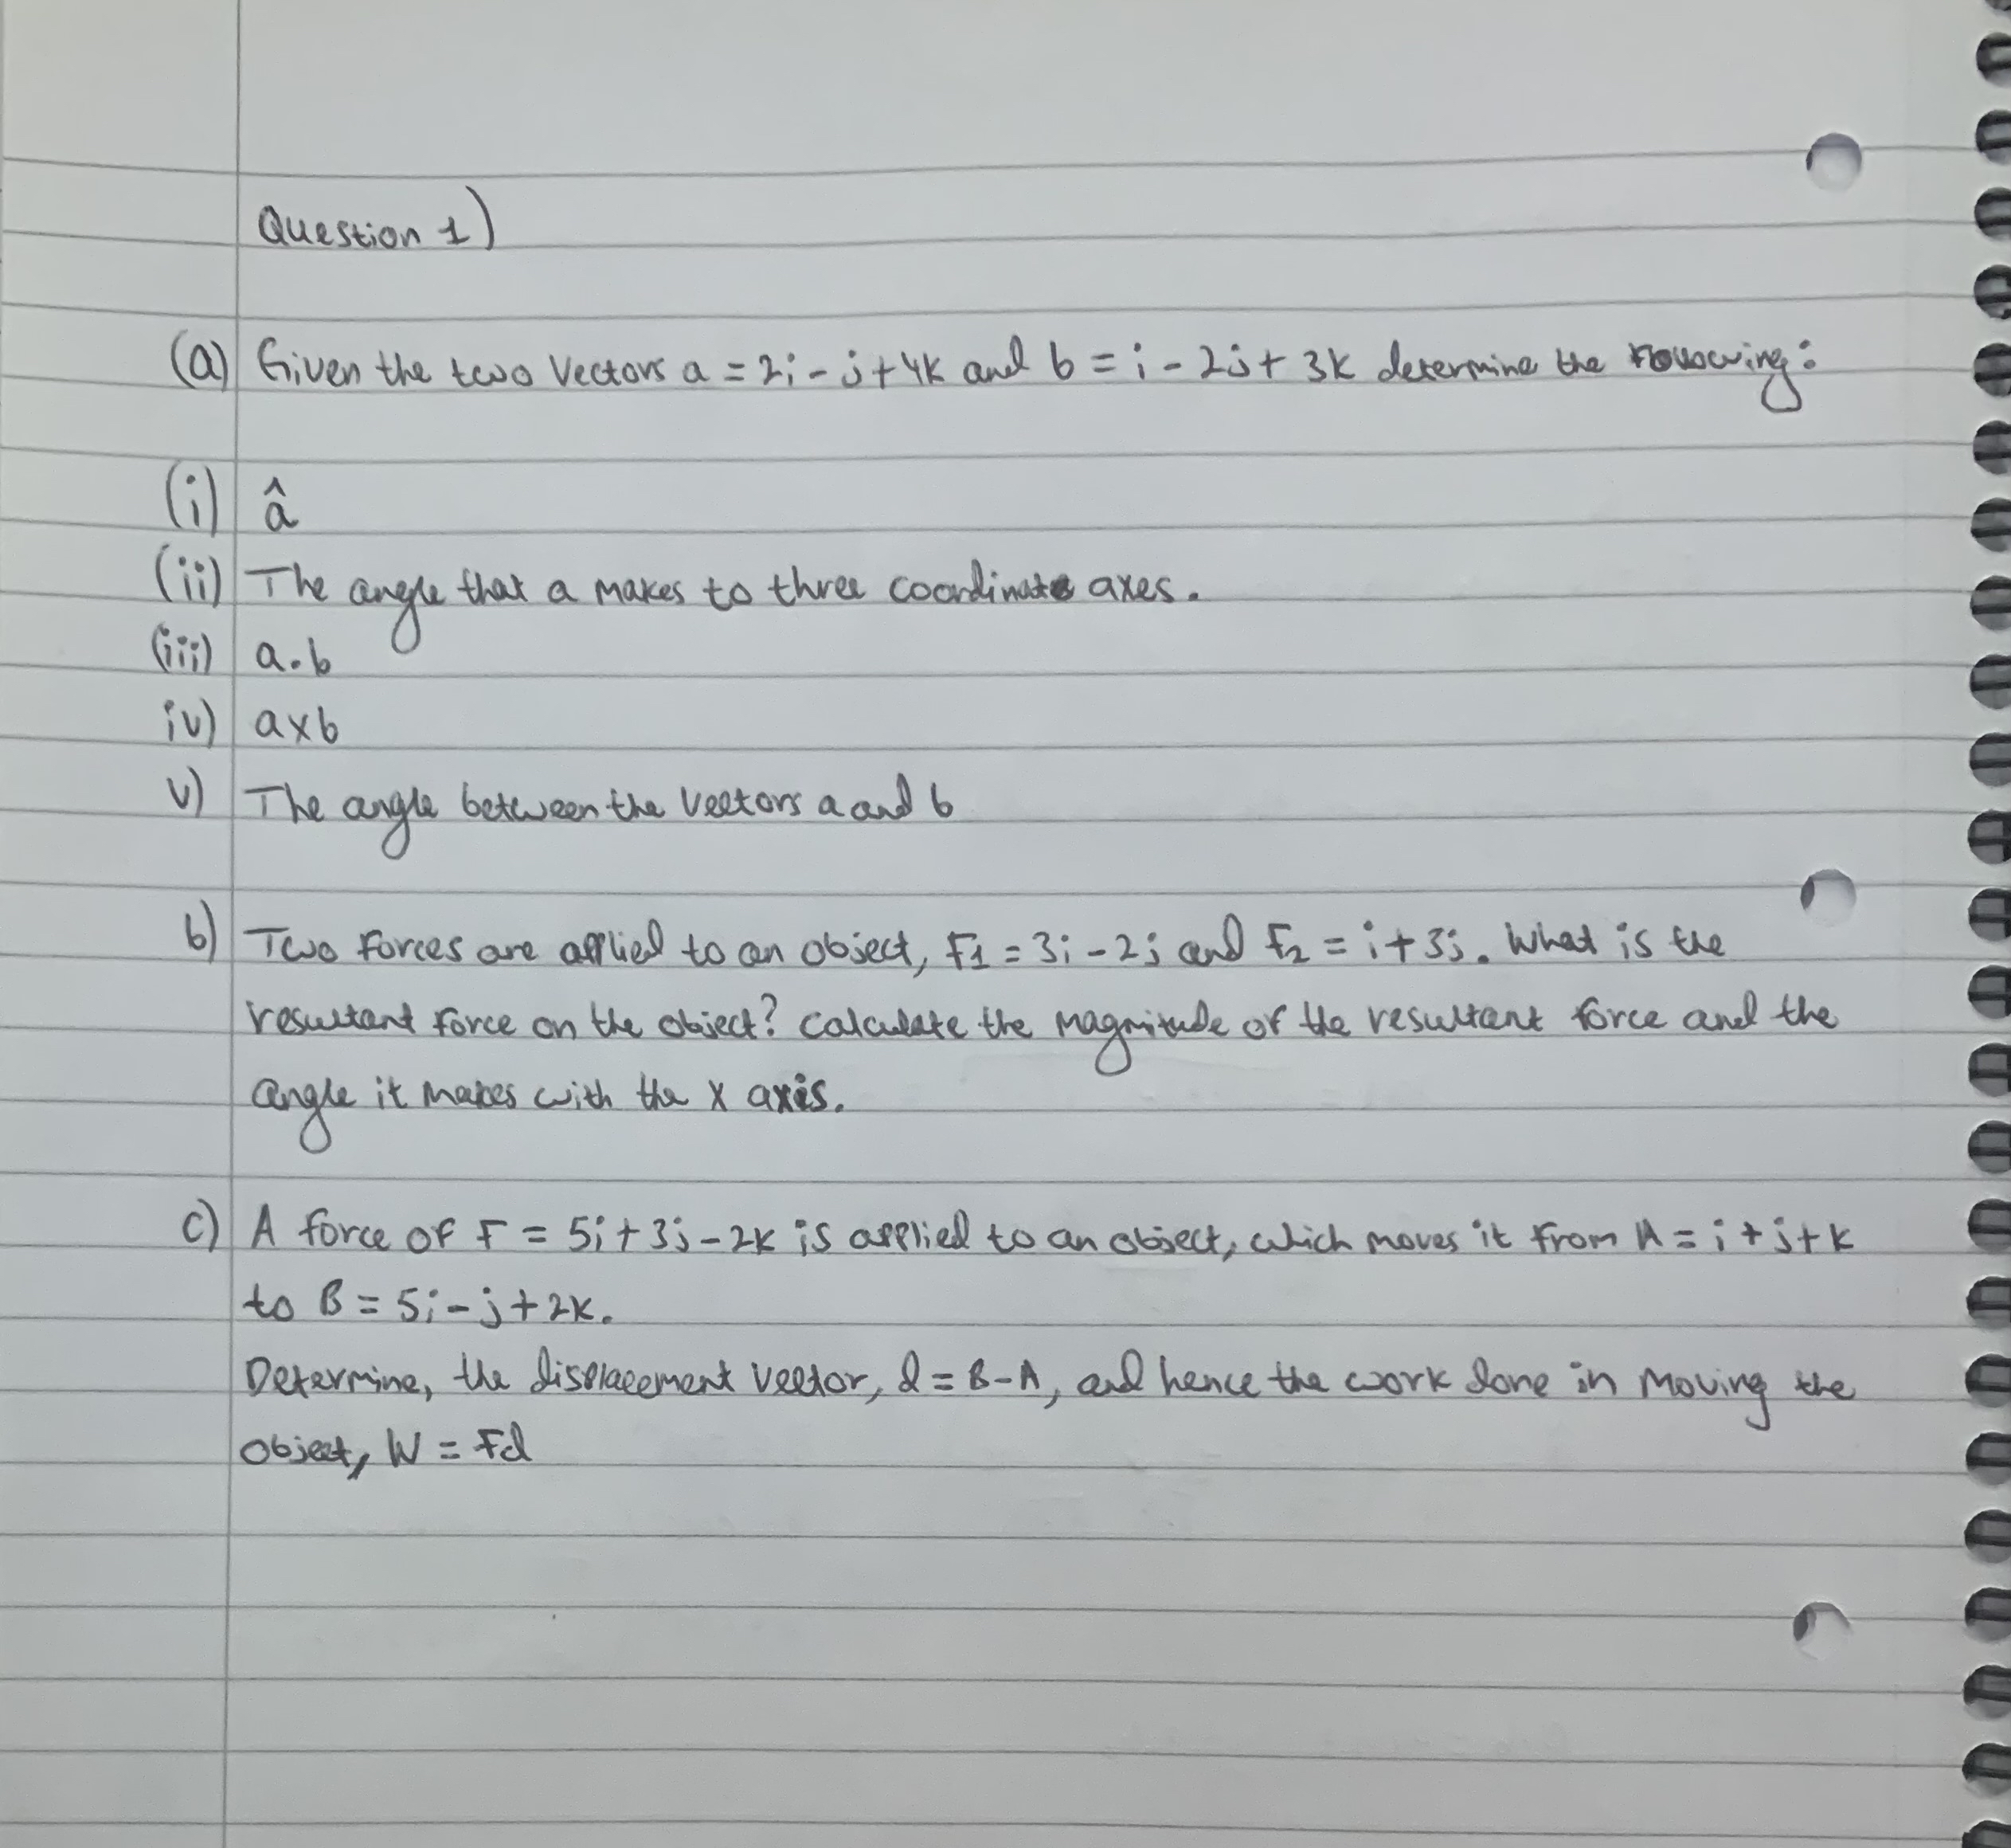 Question 1)
(a) Given the two Vectors a = 2i - j + 4k and b = i - 2j + 3k determine the following:
(i) â
(ii) The angle that a makes to three coordinate axes.
(iii) a.b
iv) axb
v) The angle between the vectors a and b
b) Two forces are applied to an object, F1 = 3i - 2j and F2 = i + 3j. What is the
resultant force on the object? calculate the magnitude of the resultant force and the
angle it makes with the x axis.
c) A force of F = 5i + 3j - 2k is applied to an object, which moves it from A = i + j + k
to B = 5i - j + 2k.
Determine, the displacement vector, d = B - A, and hence the work done in moving the
object, W = Fd